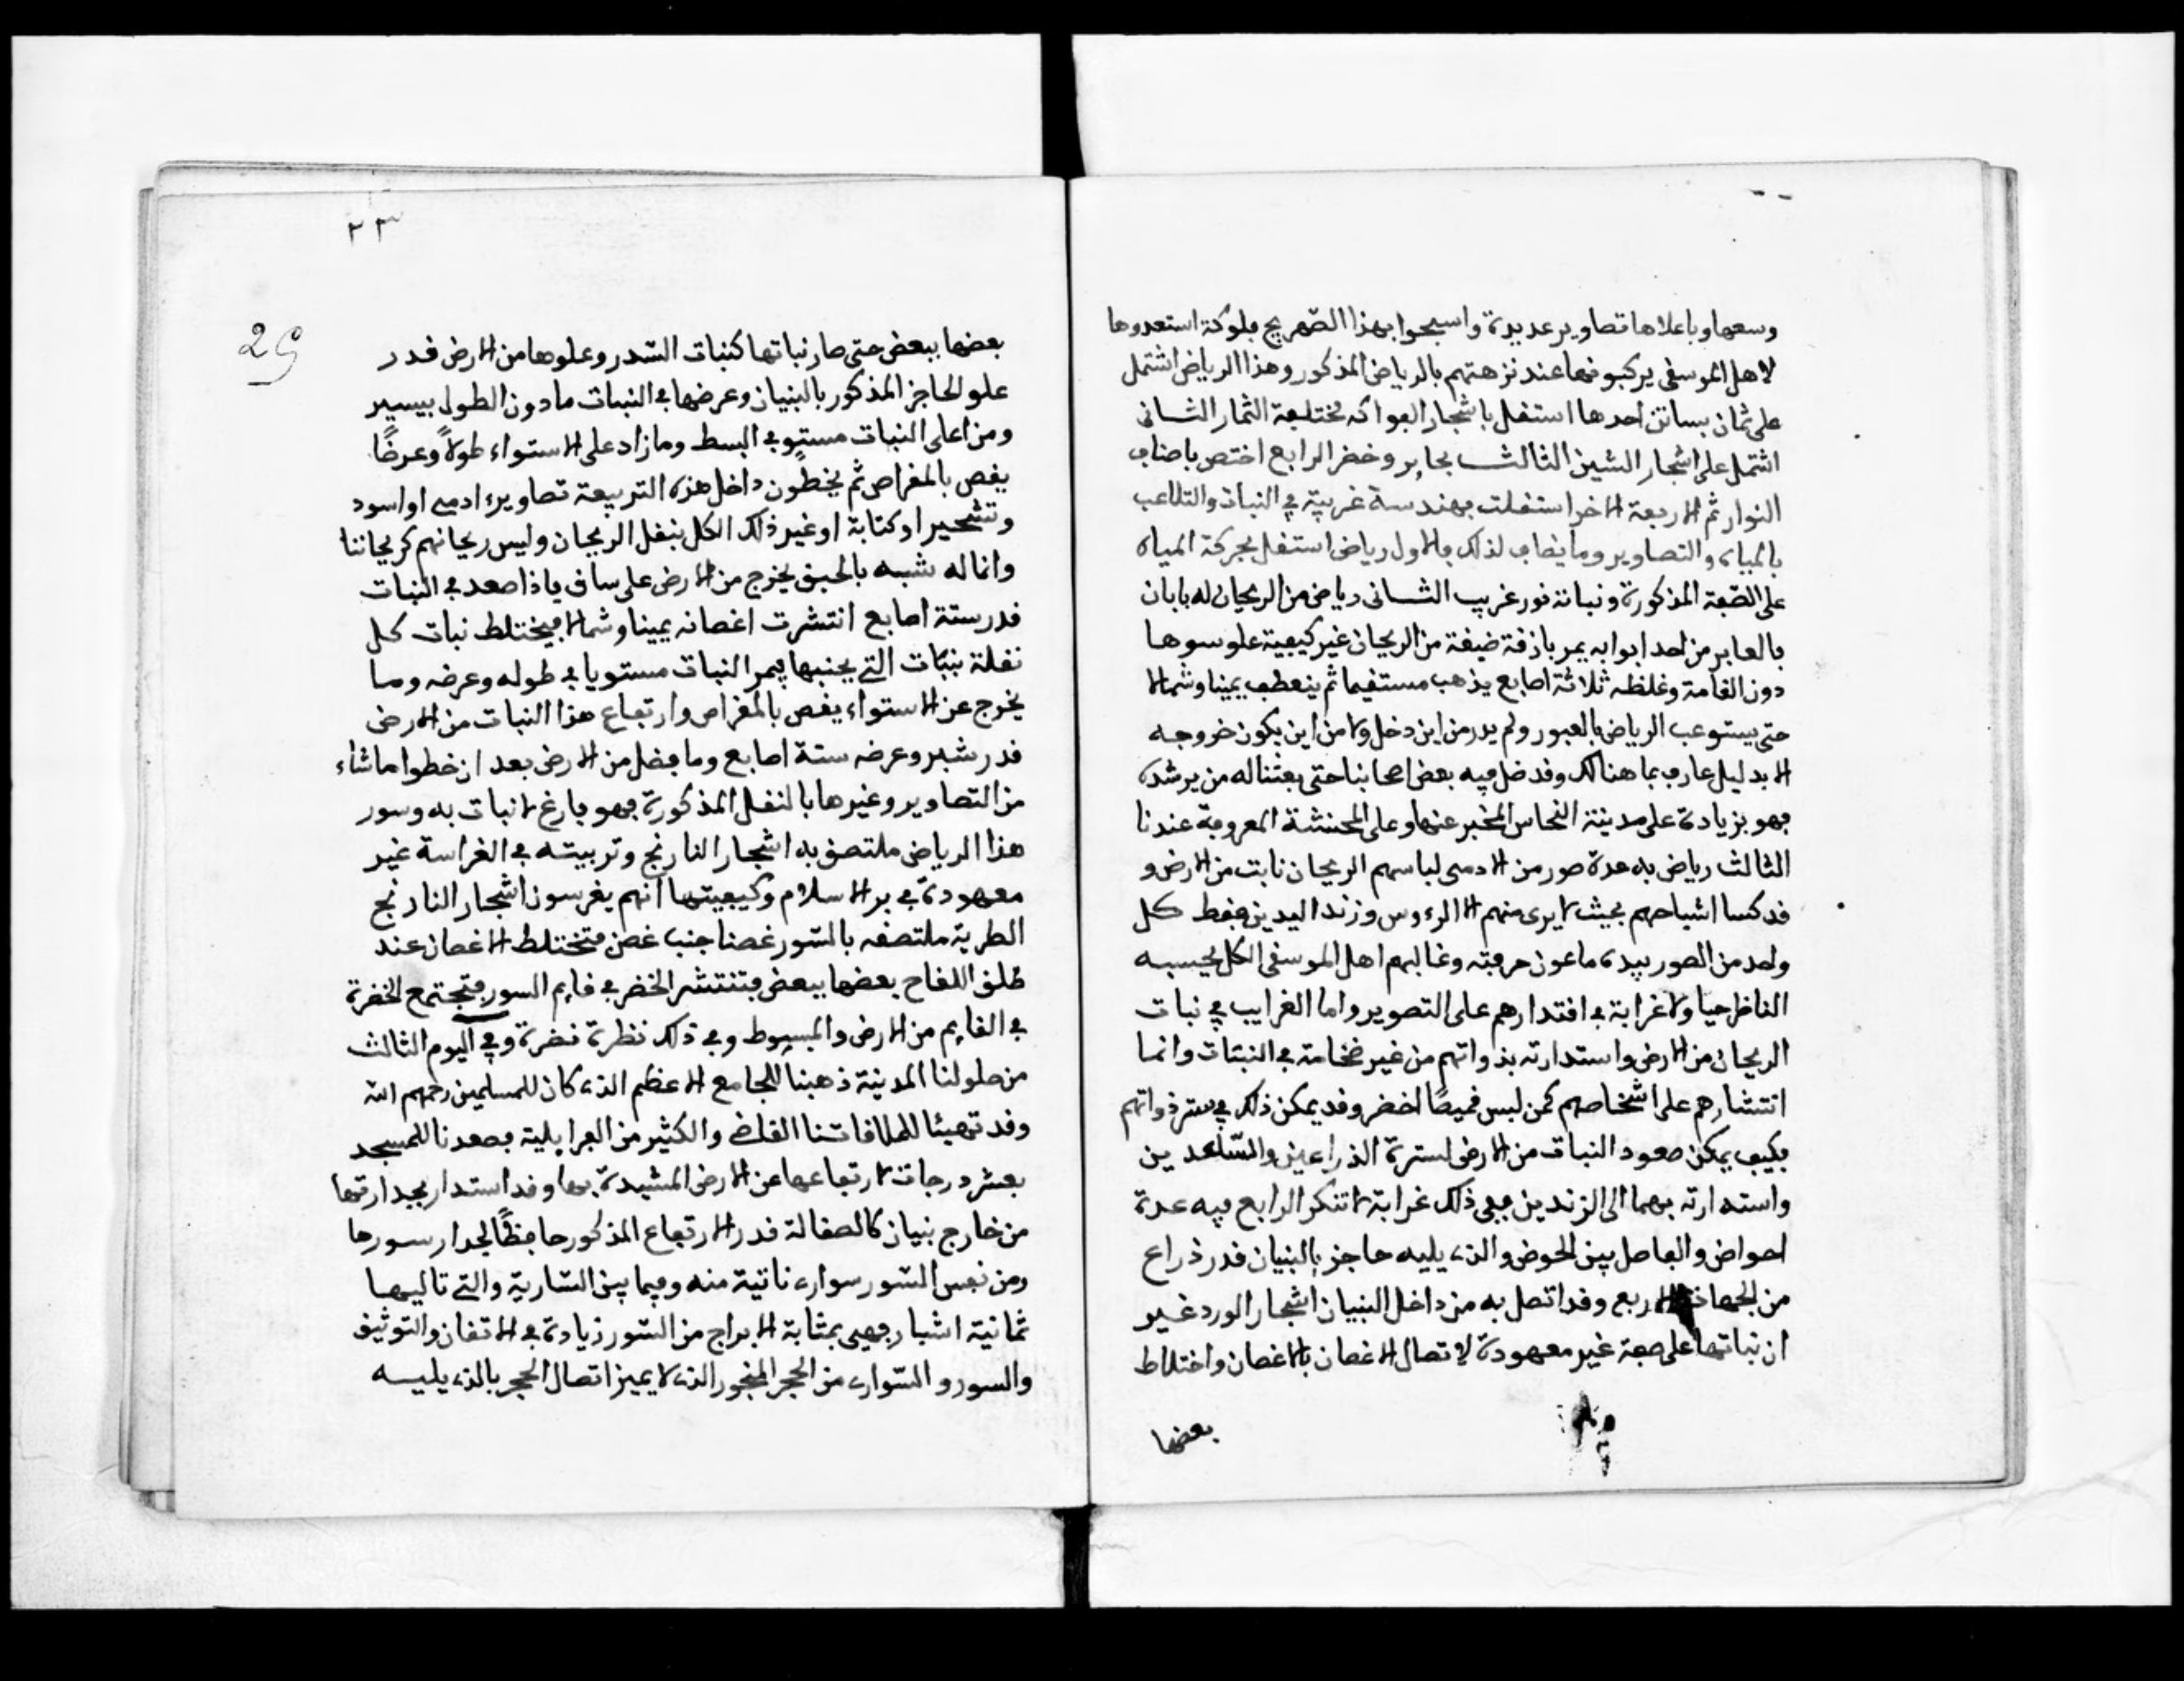 وسعها وباعلاها تصاوير عديدة واسبحوا بهذا الصهريج فلوكة استعدوها
لاهل الموسقى يركبونها عند نزهتهم بالرياض المذكور وهذا الرياض اشتمل
على ثمان بساتن احدها استقل باشجار الفواكه مختلفة الثمار الثانى
اشتمل على اشجار الشين الثالث بحاير وخضر الرابع اختص باصناف
النوار ثم الاربعة الاخر استقلت بهندسة غريبة في النبات والتلاعب
بالمياه والتصاوير وما يضاف لذلك فالاول رياض استقل بحركة المياه
على الصفة المذكورة ونباته نور غريب الثانى رياض من الريحان له بابان
فالعابر من احد ابوابه يمر بازقة ضيقة من الريحان غير كيفية علو سوها
دون القامة وغلظه ثلاثة اصابع يذهب مستقيما ثم ينعطف يمينا وشمالا
حتى يستوعب الرياض بالعبور ولم يدر من اين دخل ولا من اين يكون خروجه
الا بدليل عارف بما هنالك وقد ضل فيه بعض اصحابنا حتى بعثنا له من يرشده
فهو بزيادة على مدينة النحاس المخبر عنها وعلى المحنشة المعروفة عندنا
الثالث رياض به عدة صور من الادمى لباسهم الريحان نابت من الارض و
قد كسا اشباحهم بحيث لا يرى منهم الا الرءوس وزندا اليدين فقط كل
واحد من الصور بيده ماعون حرفته وغالبهم اهل الموسقى الكل يحسبه
الناظر حيا ولا غرابة في اقتدارهم على التصوير واما الغرايب في نبات
الريحان من الارض واستدارته بذواتهم من غير ضخامة في النبتات وانما
انتشارهم على اشخاصهم كمن لبس قميصًا اخضر وقد يمكن ذلك في ستر ذواتهم
فكيف يمكن صعود النبات من الارض لسترة الذراعين والساعدين
واستدارته بهما الى الزندين ففى ذلك غرابة لا تنكر الرابع فيه عدة
احواض والفاصل بين الحوض والذي يليه حاجز بالبنيان قدر ذراع
من الجهات الاربع وقد اتصل به من داخل البنيان اشجار الورد غير
ان نباتها على صفة غير معهودة لاتصال الاغصان بالاغصان واختلاط
بعضها
٢٣
29
بعضها ببعض حتى صار نباتها كنبات السدر وعلوها من الارض قدر
علو الحاجز المذكور بالبنيان وعرضها في النبات ما دون الطول بيسير
ومن اعلى النبات مستوٍ في البسط وما زاد على الاستواء طولاً وعرضًا
يقص بالمقراص ثم يخططون داخل هذه التربيعة تصاويرء ادمى او اسود
وتشجير او كتابة او غير ذلك الكل بنقل الريحان وليس ريحانهم كريحاننا
وانما له شبه بالحبق يخرج من الارض على ساق فاذا صعد في النبات
قدر ستة اصابع انتشرت اغصانه يمينا وشمالا فيختلط نبات كل
نقلة بنبات التي يجنبها فيمر النبات مستويا في طوله وعرضه وما
يخرج عن الاستواء يقص بالمقراص وارتفاع هذا النبات من الارض
قدر شبر وعرضه ستة اصابع وما فضل من الارض بعد ان خطوا ما شاء
من التصاوير وغيرها بالنقل المذكورة فهو فارغ لا نبات به وسور
هذا الرياض ملتصق به اشجار النارنج وتربيته في الغراسة غير
معهودة في بر الاسلام وكيفيتها انهم يغرسون اشجار النارنج
الطرية ملتصقه بالسور غصنا جنب غصن فتختلط الاغصان عند
طلق اللقاح بعضها ببعض فتنتشر الخضر في قايم السور فتجتمع الخضرة
في القايم من الارض والمبسوط وفي ذلك نظرة نضرة وفي اليوم الثالث
من حلولنا المدينة ذهبنا للجامع الاعظم الذي كان للمسلمين رحمهم الله
وقد تهيئا للملاقاتنا القاضي والكثير من الفرايلية فصعدنا للمسجد
بعشر درجات لارتفاعها عن الارض المشيدة بها وقد استدار بجدارتها
من خارج بنيان كالصقالة قدر الارتفاع المذكور حافظًا لجدار سورها
ومن نفس السور سواري ناتية منه وفيما بين السارية والتي تاليها
ثمانية اشبار فهى بمثابة الابراج من السور زيادة في الاتقان والتوثيق
والسور و السواري من الحجر المنجور الذي لا يميز اتصال الحجر بالذي يليه